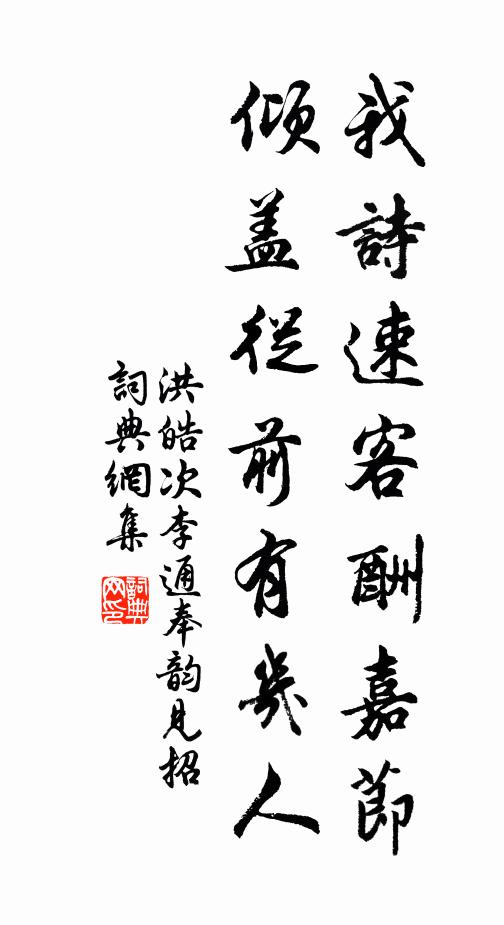 我詩速客酬嘉節
傾盖從前有幾人
洪皓次李通奉韵見招
詞典網集
詞典
网印